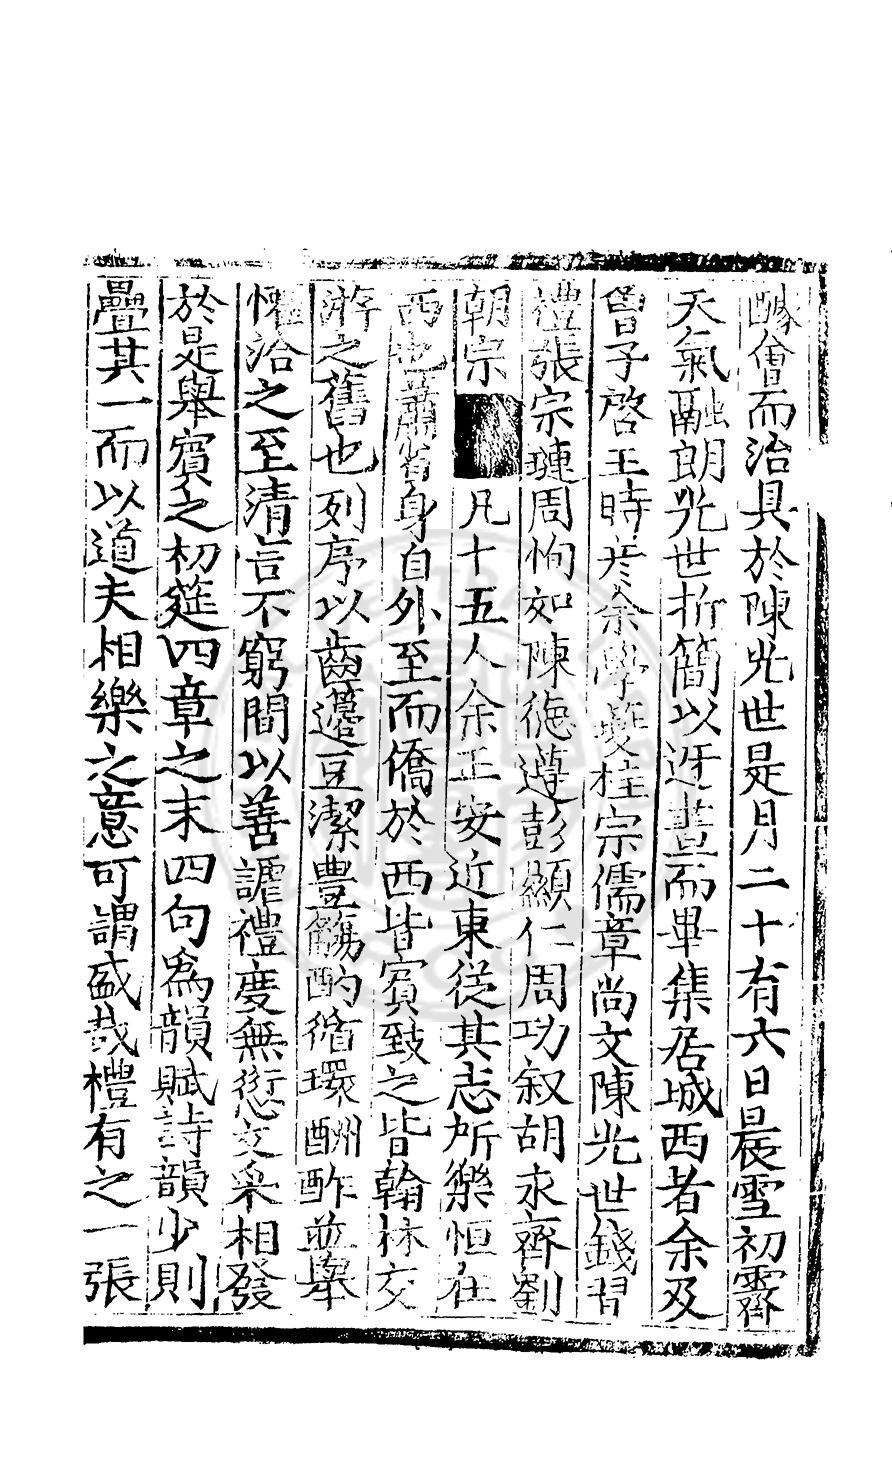 醵會而治具於陳光世是月二十有六日晨雪初霽
天氣融朗光世折簡以迓晝而畢集居城西者余及
曾子啓王時彦余學夔桂宗儒章尚文陳光世錢習
禮張宗璉周恂如陳德遵彭顯仁周功叙胡永齊劉
朝宗凡十五人余正安近東從其志所樂恒在
西也蕭省身自外至而僑於西皆賓致之皆翰林交
游之舊也列序以齒籩豆潔豐觴酌循環酬酢並舉
懽洽之至清言不窮間以善謔禮度無愆文采相發
於是舉賓之初筵四章之末四句為韻賦詩韻少則
疊其一而以道夫相樂之意可謂盛哉禮有之一張